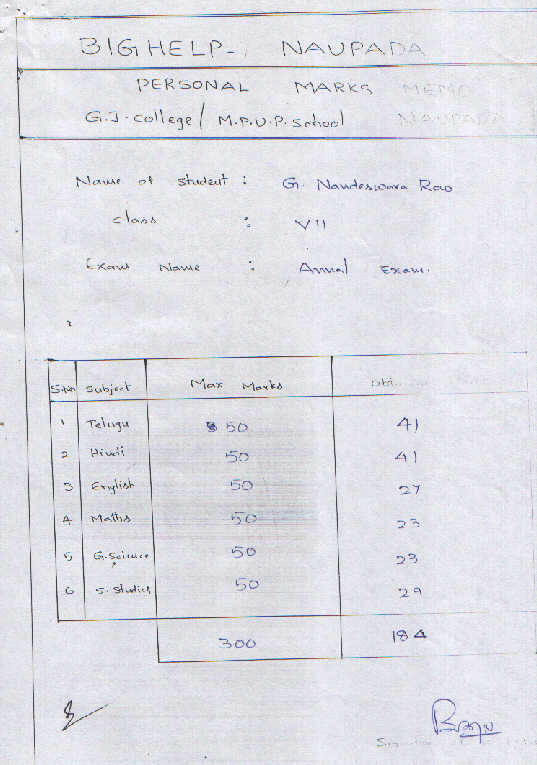 BIGHELP-, NAUPADA
PERSONAL MARKS MEMO
G.J.college/ M.P.U.P.School NAUPADA
Name of student : G. Nandeswara Rao
class : VII
Exam Name : Annual Exam.
S.No Subject Max Marks Obt.
1 Telugu 50 41
2 Hindi 50 41
3 English 50 27
4 Maths 50 23
5 G.Science 50 23
6 S. Studies 50 29
300 184